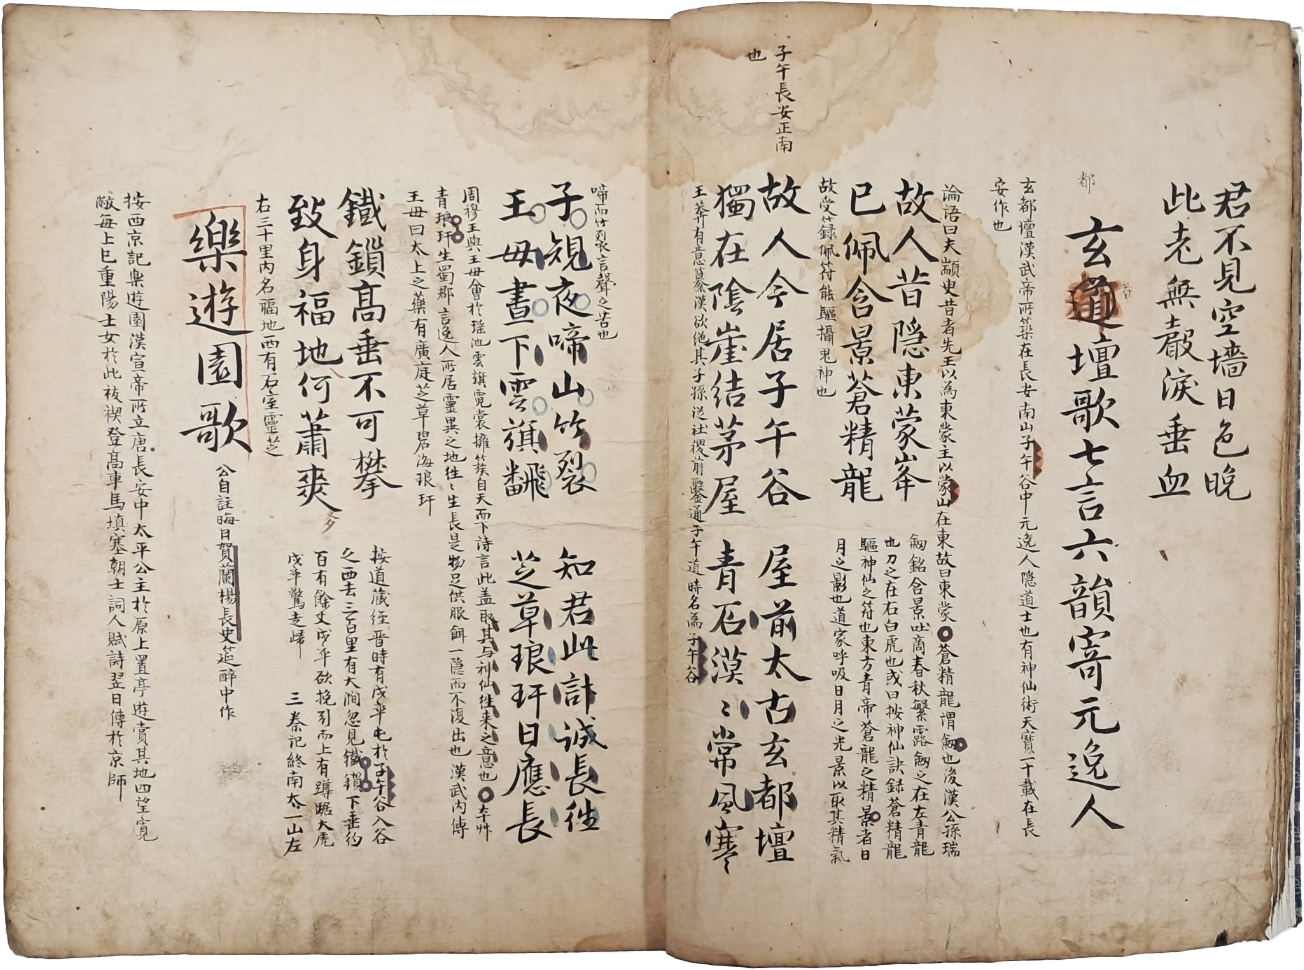 君不見空墻日色晚
此老無聲淚垂血
玄道壇歌七言六韻寄元逸人
都
玄都壇漢武帝所築在長安南山子午谷中元逸人隱道士也有神仙術天寶二十載在長
安作也
論語曰夫顓臾昔者先王以為東蒙主以蒙山在東故曰東蒙蒼精龍謂劔也後漢公孫瑞
故人昔隠東蒙峯
已佩含景蒼精龍
劔銘含景吐商春秋繁露劔之在左青龍
也刀之在右白虎也或曰按神仙訣録蒼精龍
驅神仙之符也東方青帝蒼龍之精景者日
月之影也道家呼吸日月之光景以取其精氣
故受籙佩符能驅攝鬼神也
子午長安正南
也
故人今居子午谷
獨在隂崖結茅屋
屋前太古玄都壇
青石漠〻常風寒
王莽有意篡漢欲絶其子孫從社稷前鑿通子午道時名為子午谷
啼而竹裂言聲之苦也
子規夜啼山竹裂
王母晝下雲旗飜
知君此計誠長徃
芝草琅玕日應長
周穆王與王母會於瑶池雲旗霓裳擁簇自天而下詩言此盖取其与神仙徃来之意也 本艸
青琅玕生蜀郡言逸人所居靈異之地徃〻生長是物足供服餌一隱而不復出也 漢武內傳
王母曰太上之藥有廣庭芝草碧海琅玕
鐵鎖髙垂不可攀
致身福地何蕭爽
按道藏経晉時有戍卒屯於子午谷入谷
之西去三百里有大澗忽見鐵鎖下垂約
百有餘丈戍卒欲挽引而上有蹲踞大虎
戍卒驚走歸 三秦記終南太一山左
右三十里內名福地西有石室靈芝
樂遊園歌
公自註晦日賀蘭楊長史筵醉中作
按西京記樂遊園漢宣帝所立唐長安中太平公主於原上置亭遊賞其地四望寬
敞每上巳重陽士女於此祓禊登髙車馬填塞朝士詞人賦詩翌日傳於京師